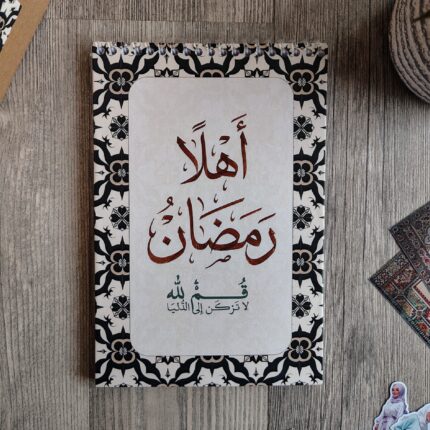 أَهْلًا
رَمَضَانُ
قُمْ لله
لا تَركَن إلى الدُّنْيَا